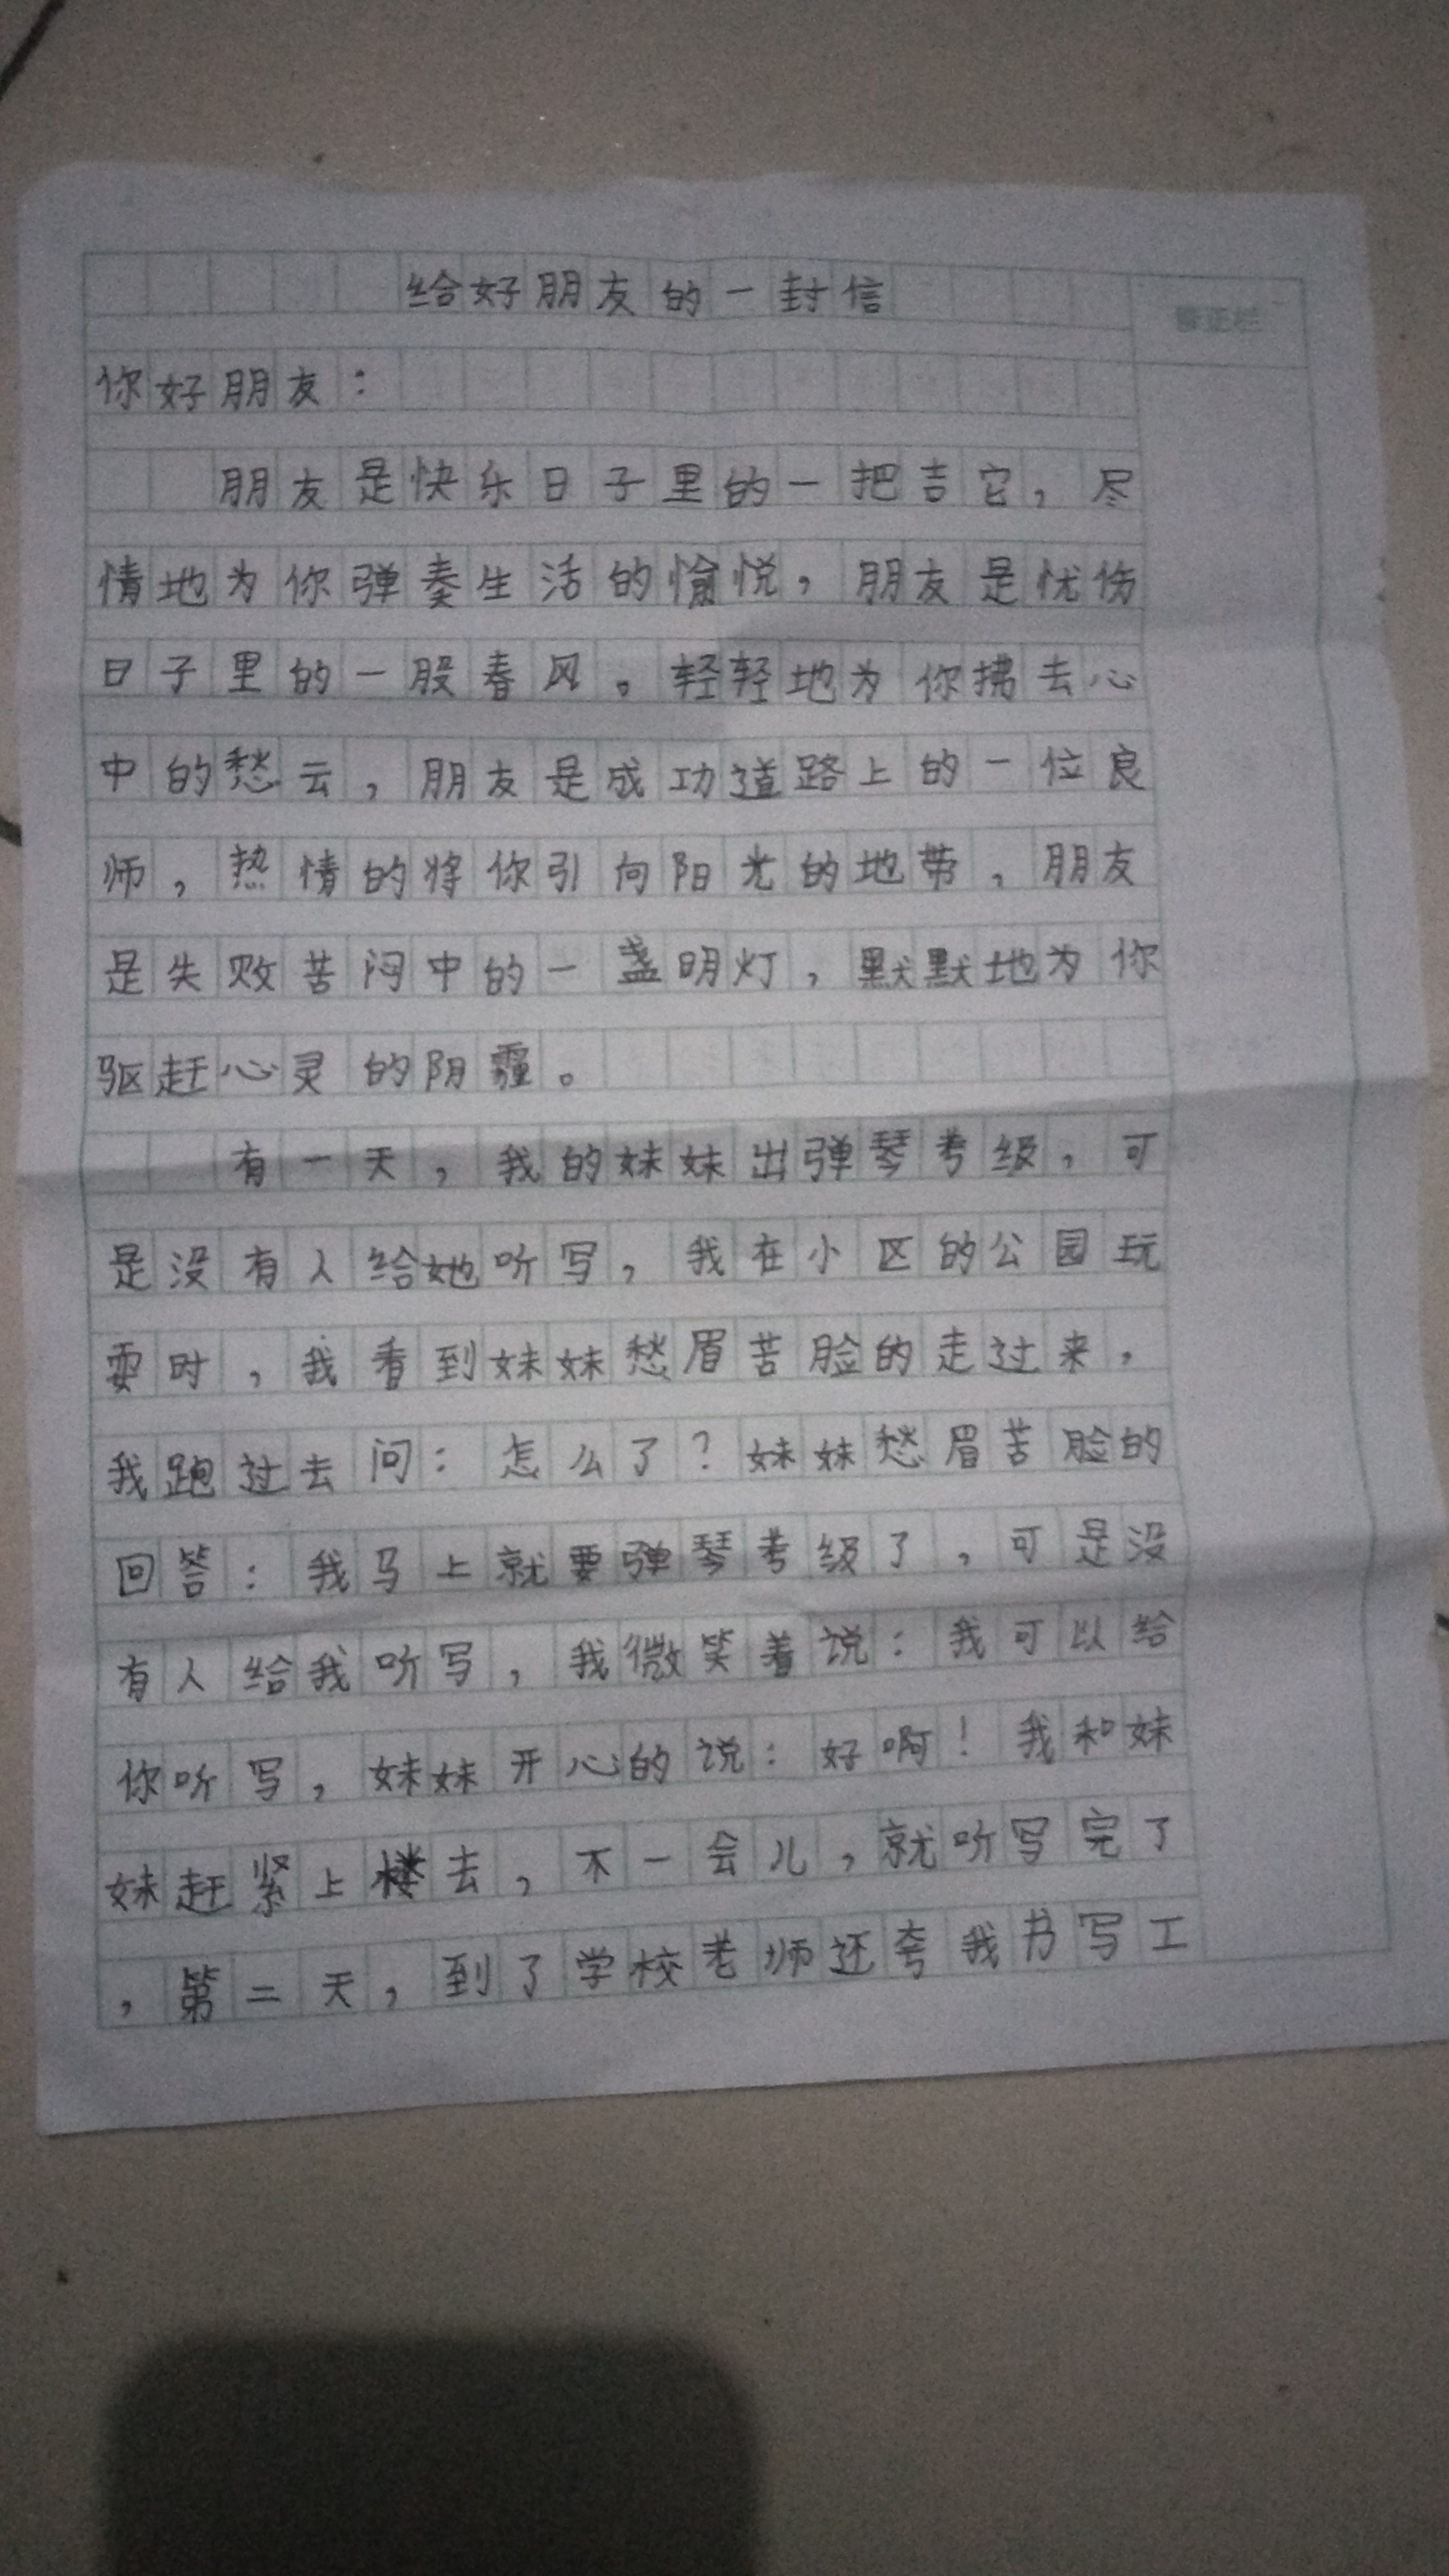 给好朋友的一封信
你好朋友：
朋友是快乐日子里的一把吉它，尽
情地为你弹奏生活的愉悦，朋友是忧伤
日子里的一股春风。轻轻地为你拂去心
中的愁云，朋友是成功道路上的一位良
师，热情的将你引向阳光的地带，朋友
是失败苦闷中的一盏明灯，默默地为你
驱赶心灵的阴霾。
有一天，我的妹妹出弹琴考级，可
是没有人给她听写，我在小区的公园玩
耍时，我看到妹妹愁眉苦脸的走过来，
我跑过去问：怎么了？妹妹愁眉苦脸的
回答：我马上就要弹琴考级了，可是没
有人给我听写，我微笑着说：我可以给
你听写，妹妹开心的说：好啊！我和妹
妹赶紧上楼去，不一会儿，就听写完了
，第二天，到了学校老师还夸我书写工